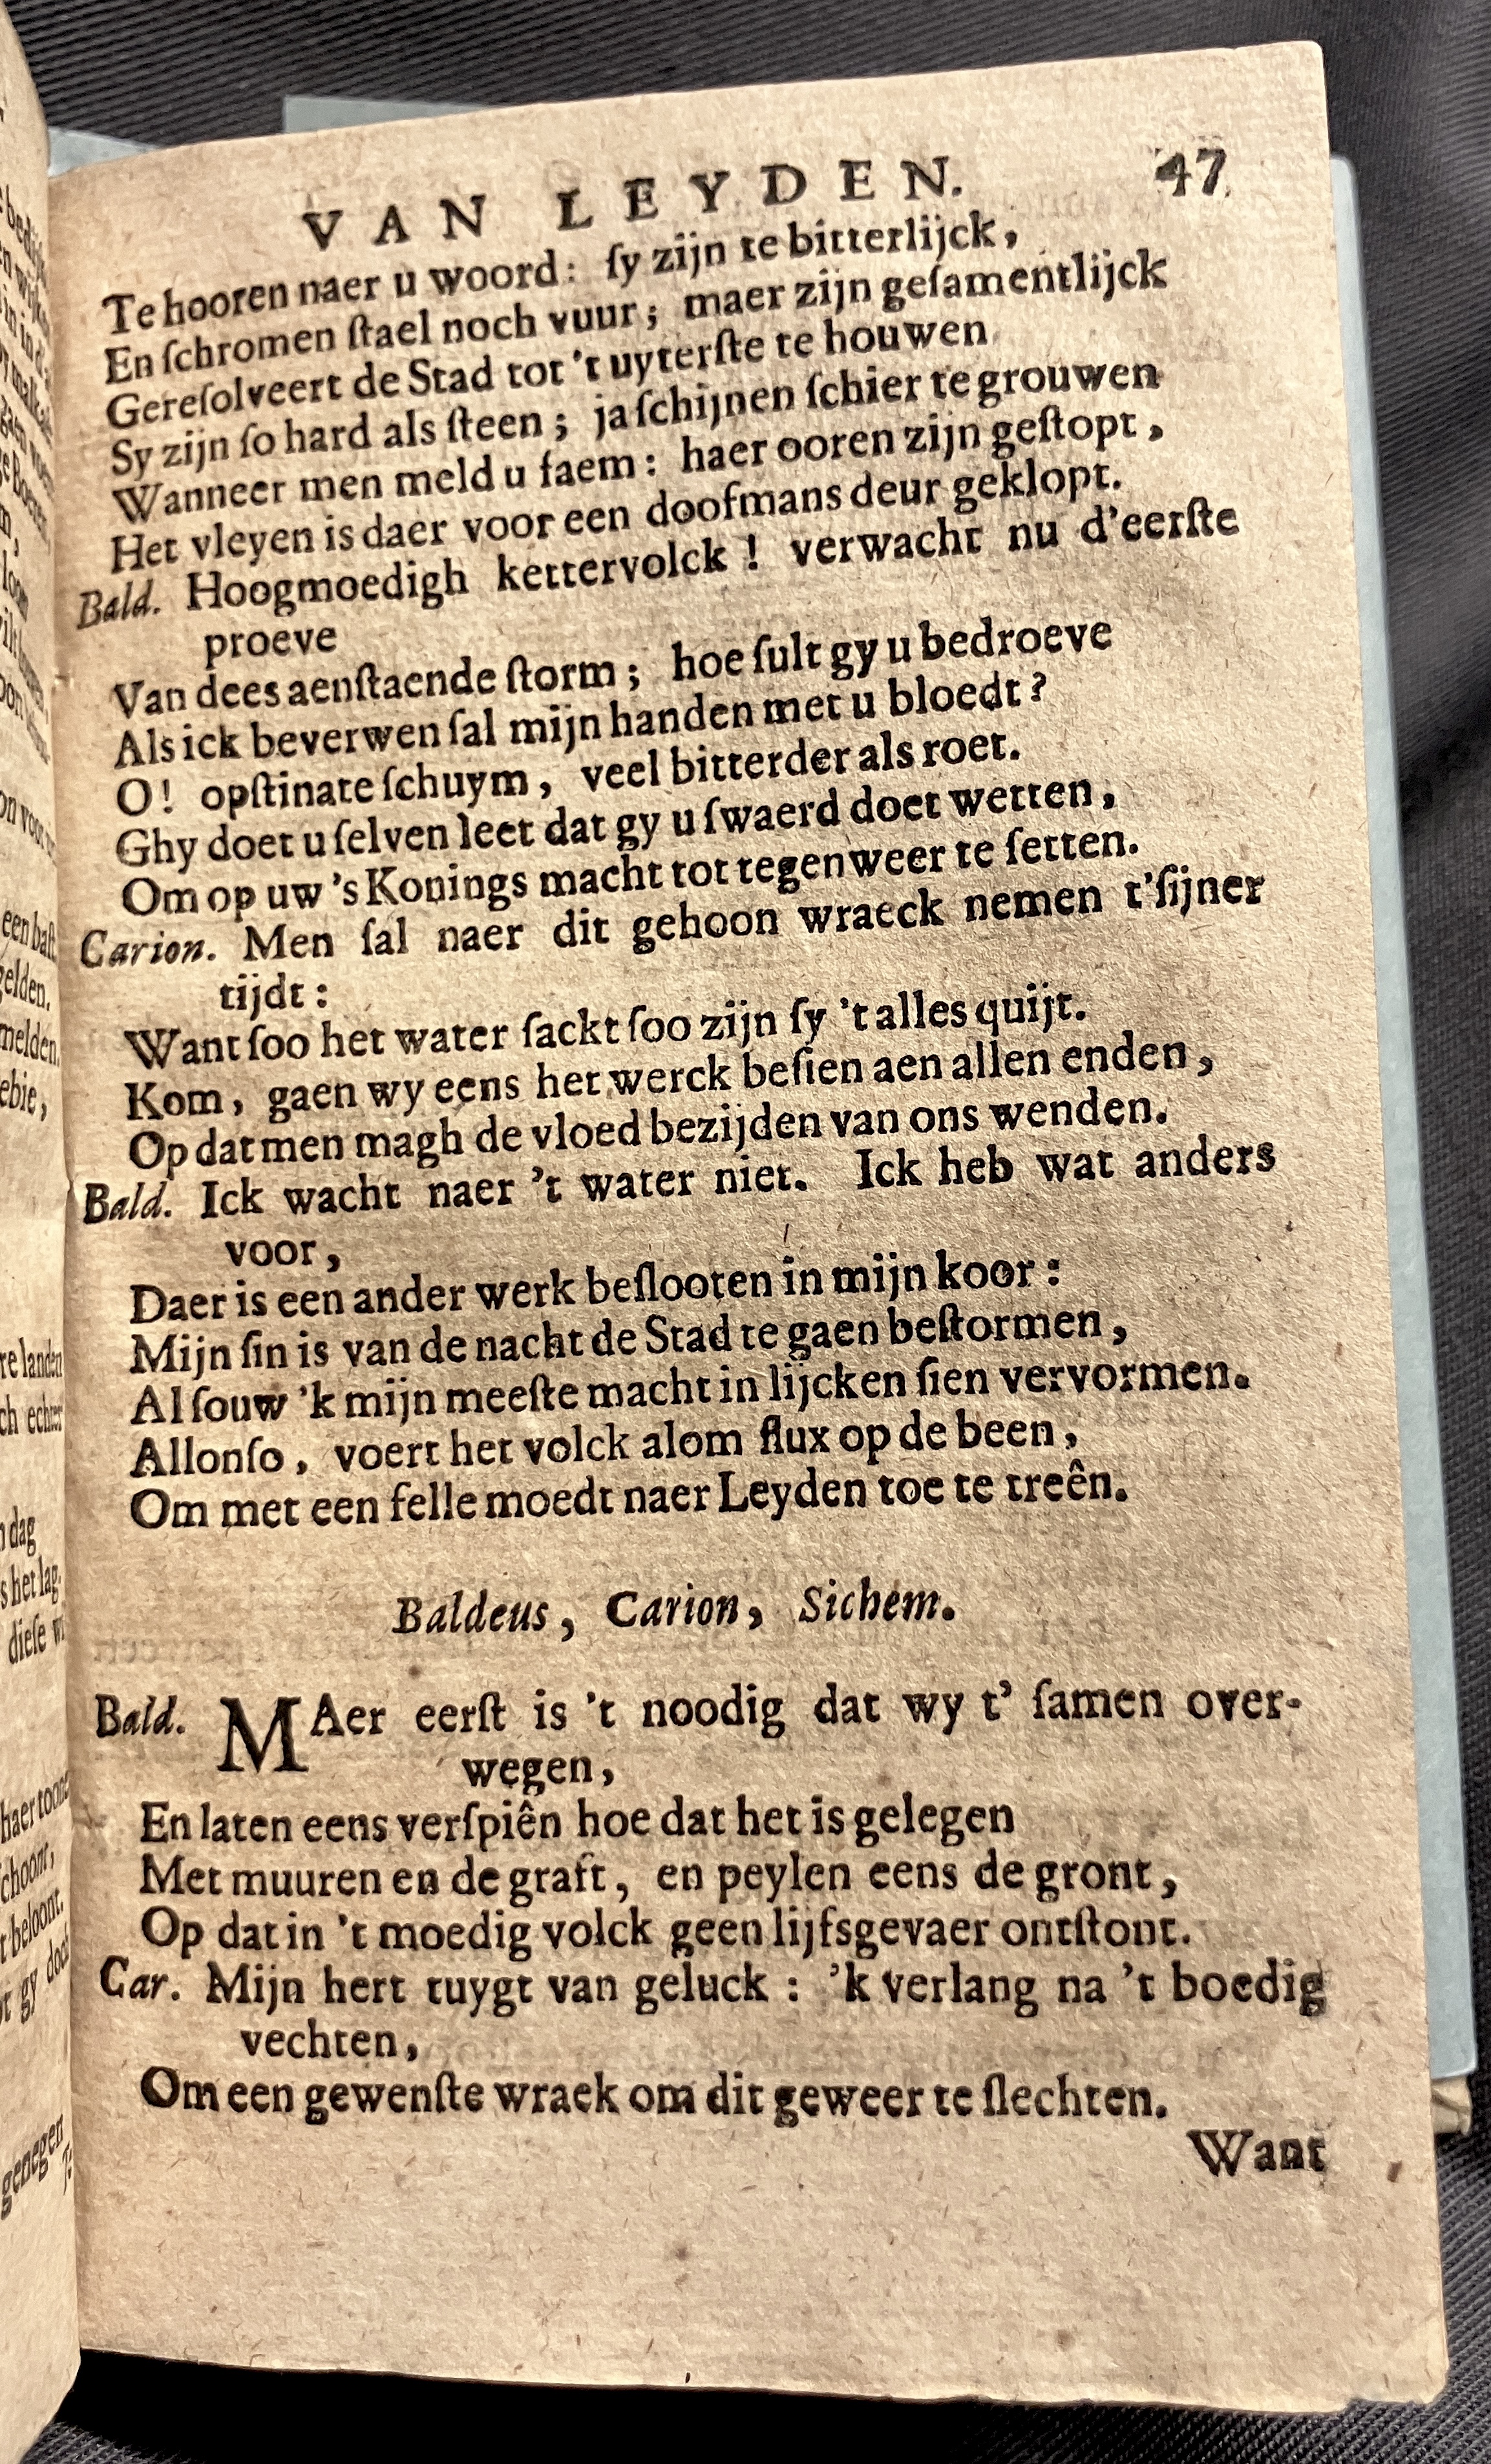 VAN LEYDEN. 47
Te hooren naer u woord: ſy zijn te bitterlijck,
En ſchromen ſtael noch vuur; maer zijn geſamentlijck
Gereſolveert de Stad tot 't uyterſte te houwen
Sy zijn ſo hard als ſteen; ja ſchijnen ſchier te grouwen
Wanneer men meld u faem: haer ooren zijn geſtopt,
Het vleyen is daer voor een doofmans deur geklopt.
Bald. Hoogmoedigh kettervolck! verwacht nu d'eerſte
proeve
Van dees aenſtaende ſtorm; hoe ſult gy u bedroeve
Als ick beverwen ſal mijn handen met u bloedt?
O! opſtinate ſchuym, veel bitterder als roet.
Ghy doet u ſelven leet dat gy u ſwaerd doet wetten,
Om op uw 's Konings macht tot tegenweer te ſetten.
Carion. Men ſal naer dit gehoon wraeck nemen t'ſijner
tijdt:
Want ſoo het water ſackt ſoo zijn ſy 't alles quijt.
Kom, gaen wy eens het werck beſien aen allen enden,
Op dat men magh de vloed bezijden van ons wenden.
Bald. Ick wacht naer 't water niet. Ick heb wat anders
voor,
Daer is een ander werk beſlooten in mijn koor:
Mijn ſin is van de nacht de Stad te gaen beſtormen,
Al ſouw 'k mijn meeſte macht in lijcken ſien vervormen.
Allonſo, voert het volck alom flux op de been,
Om met een felle moedt naer Leyden toe te treên.
Baldeus, Carion, Sichem.
Bald. MAer eerſt is 't noodig dat wy t' ſamen over-
wegen,
En laten eens verſpiên hoe dat het is gelegen
Met muuren en de graft, en peylen eens de gront,
Op dat in 't moedig volck geen lijfsgevaer ontſtont.
Car. Mijn hert tuygt van geluck: 'k verlang na 't boedig
vechten,
Om een gewenſte wraek om dit geweer te ſlechten.
Want